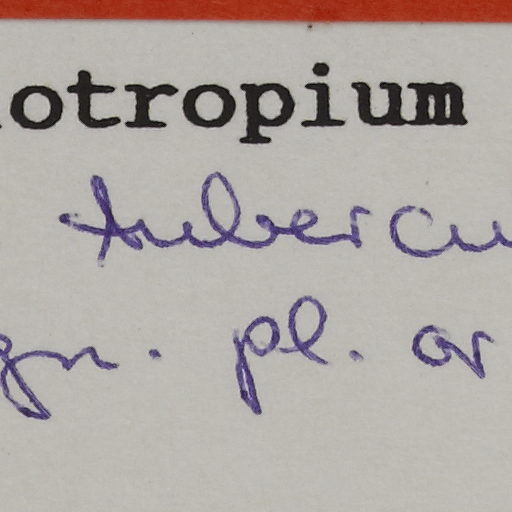 otropium
tubercu
gn. pl. or